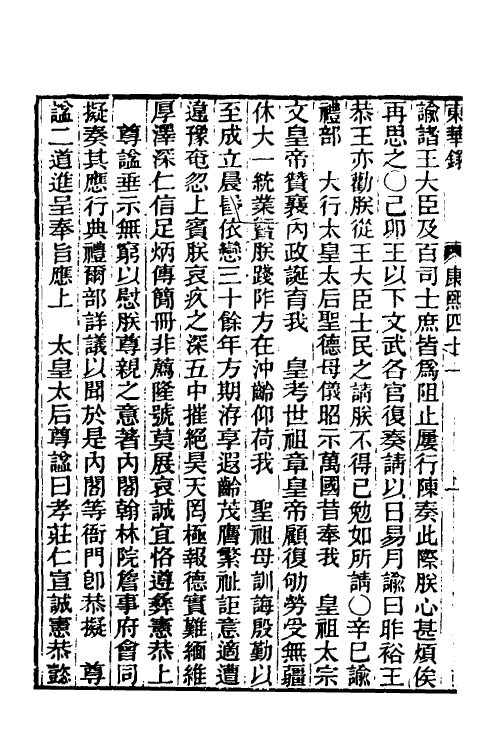 東華錄　康熙四十一
諭諸王大臣及百司士庶皆爲阻止屢行陳奏此際朕心甚煩俟
再思之〇己卯王以下文武各官復奏請以日易月諭曰昨裕王
恭王亦勸朕從王大臣士民之請朕不得已勉如所請〇辛巳諭
禮部　大行太皇太后聖德母儀昭示萬國昔奉我　皇祖太宗
文皇帝贊襄內政誕育我　皇考世祖章皇帝顧復劬勞受無疆
休大一統業暨朕踐阼方在沖齡仰荷我　聖祖母訓誨殷勤以
至成立晨昏依戀三十餘年方期洊享遐齡茂膺繁祉詎意適遭
違豫奄忽上賓朕哀疚之深五中摧絕昊天罔極報德實難緬維
厚澤深仁信足炳傳簡冊非薦隆號莫展哀誠宜恪遵彝憲恭上
尊諡垂示無窮以慰朕尊親之意著內閣翰林院詹事府會同
擬奏其應行典禮爾部詳議以聞於是內閣等衙門卽恭擬　尊
諡二道進呈奉旨應上　太皇太后尊諡曰孝莊仁宣誠憲恭懿